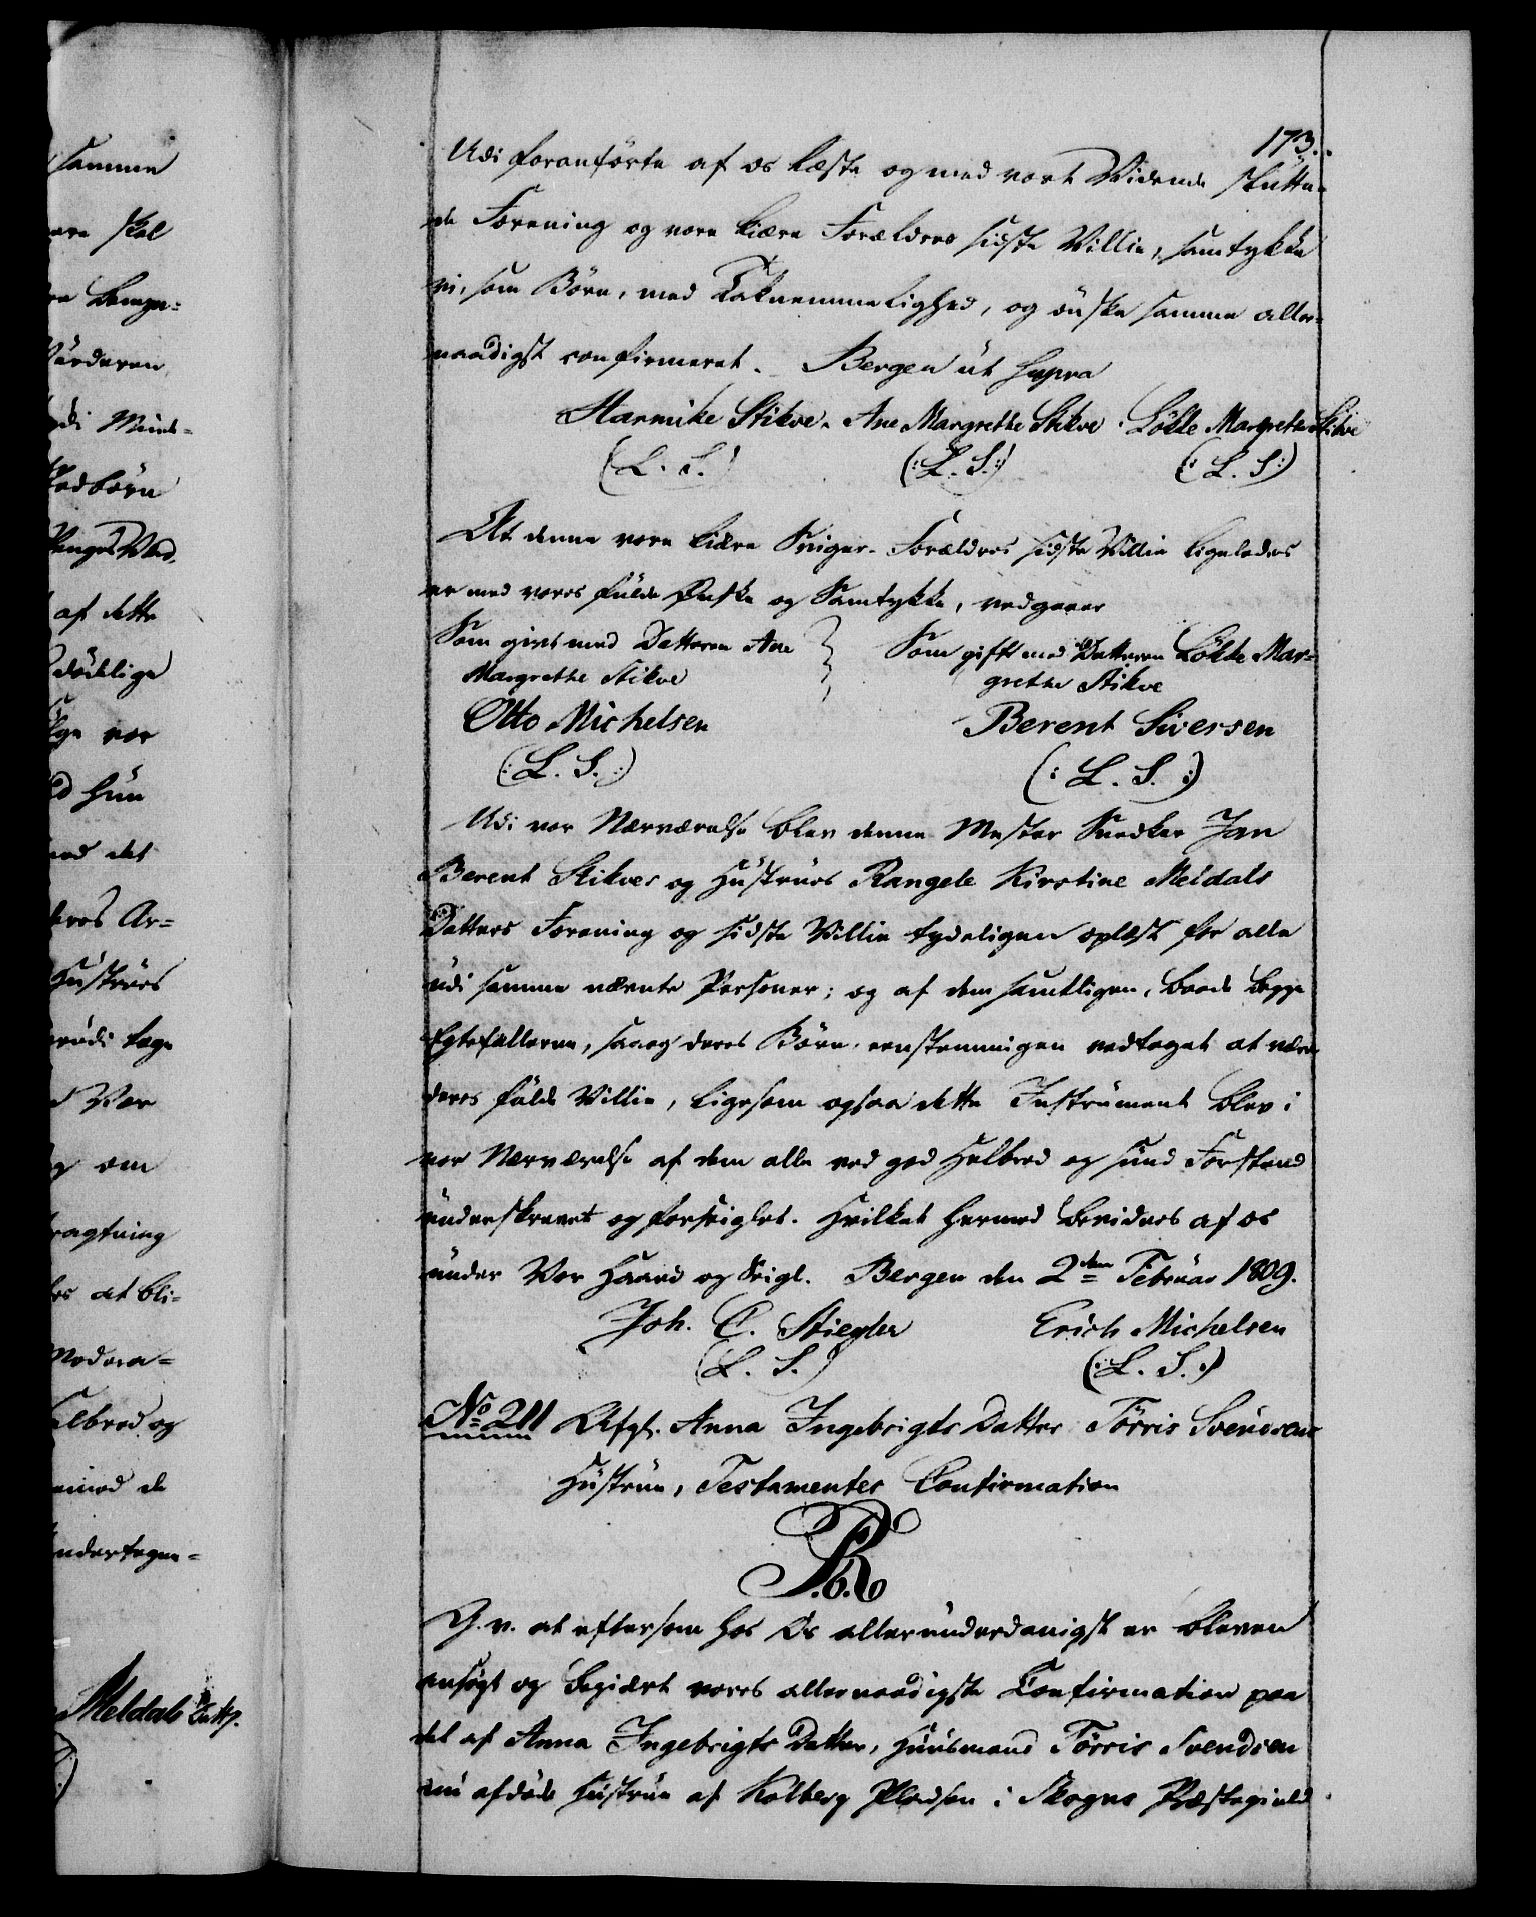 173.
Udi foranførte af os læste og med vort Vidende sluttu-
de Forening og vore kiære Forældres sidste Villie, samtykke
vi, som Børn, med Taknemmelighed, og ønske samme aller-
naadigst confirmeret. Bergen ut supra
Harmike Stikve. Ane Margrethe Stikve. Lökke Margrethe Stikve
(L. S.) (:L. S.:) (:L. S:)
At denne vore kiære Sviger-Forældres sidste Villie ligeledes
er med vores fulde Ønske og Samtykke, vedgaaer
Som givt med Datteren Ane
Margrethe Stikve
Otto Michelsen
(:L. S.:)
Som gift med Datteren Lökke Mar-
grethe Stikve
Berent Siversen
(:L. S.:)
Udi vor Nærværelse blev denne Mester Snedker Jan
Berent Stikves og Hustrues Rangele Kirstine Meldals
Datters Forening og sidste Villie tydeligen oplæst for alle
udi samme nævnte Personer; og af dem samtligen, baade begge
Egtefællerne, saa og deres Børn, eenstemmigen vedtaget at være
deres fulde Villie, ligesom ogsaa dette Instrument blev i
vor Nærværelse af dem alle ved god Helbred og sund Forstand
underskrevet og forseiglet. Hvilket hermed bevidnes af os
under Vor Haand og Seigl. Bergen den 2den Februar 1809.
Joh. C. Stiegler Erich Michelsen
(L. S.) (:L. S.:)
No 211 Afg. Anna Ingebrigts Datter Törris Svendsens
Hustrue, Testamentes Confirmation
G. v. at eftersom hos Os allerunderdanigst er bleven
ansøgt og begiært vores allernaadigste Confirmation paa
det af Anna Ingebrigts Datter, Huusmand Törris Svendsen
nu afdøde Hustrue af Kolberg Pladsen i Skogns Præstegield
samme
skal
af dette
vor
hun
det
deres Ar-
Hustrues
tage
Vor
om
at bli-
og
de
Meldals Dattr.